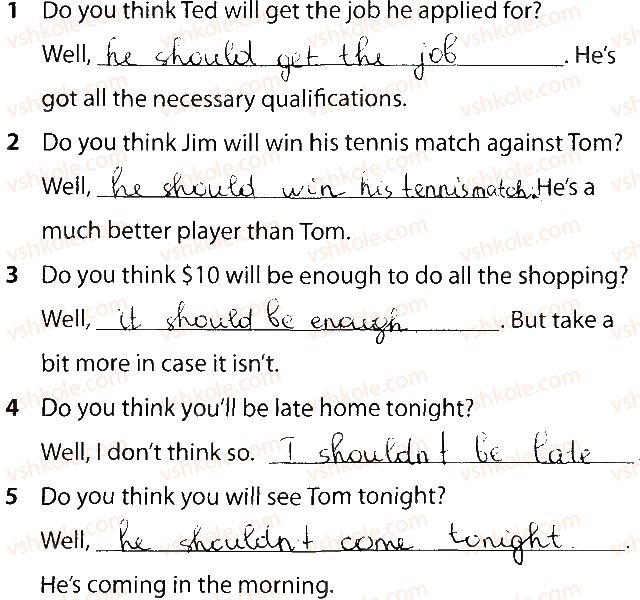 1 Do you think Ted will get the job he applied for?
Well, he should get the job. He's
got all the necessary qualifications.
2 Do you think Jim will win his tennis match against Tom?
Well, he should win his tennis match. He's a
much better player than Tom.
3 Do you think $10 will be enough to do all the shopping?
Well, it should be enough. But take a
bit more in case it isn't.
4 Do you think you'll be late home tonight?
Well, I don't think so. I shouldn't be late
5 Do you think you will see Tom tonight?
Well, he shouldn't come tonight.
He's coming in the morning.